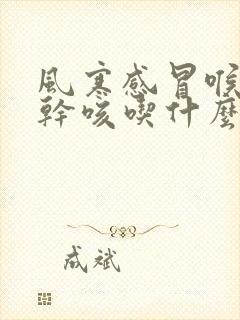 風寒感冒喉
幹咳喫什麼
成斌